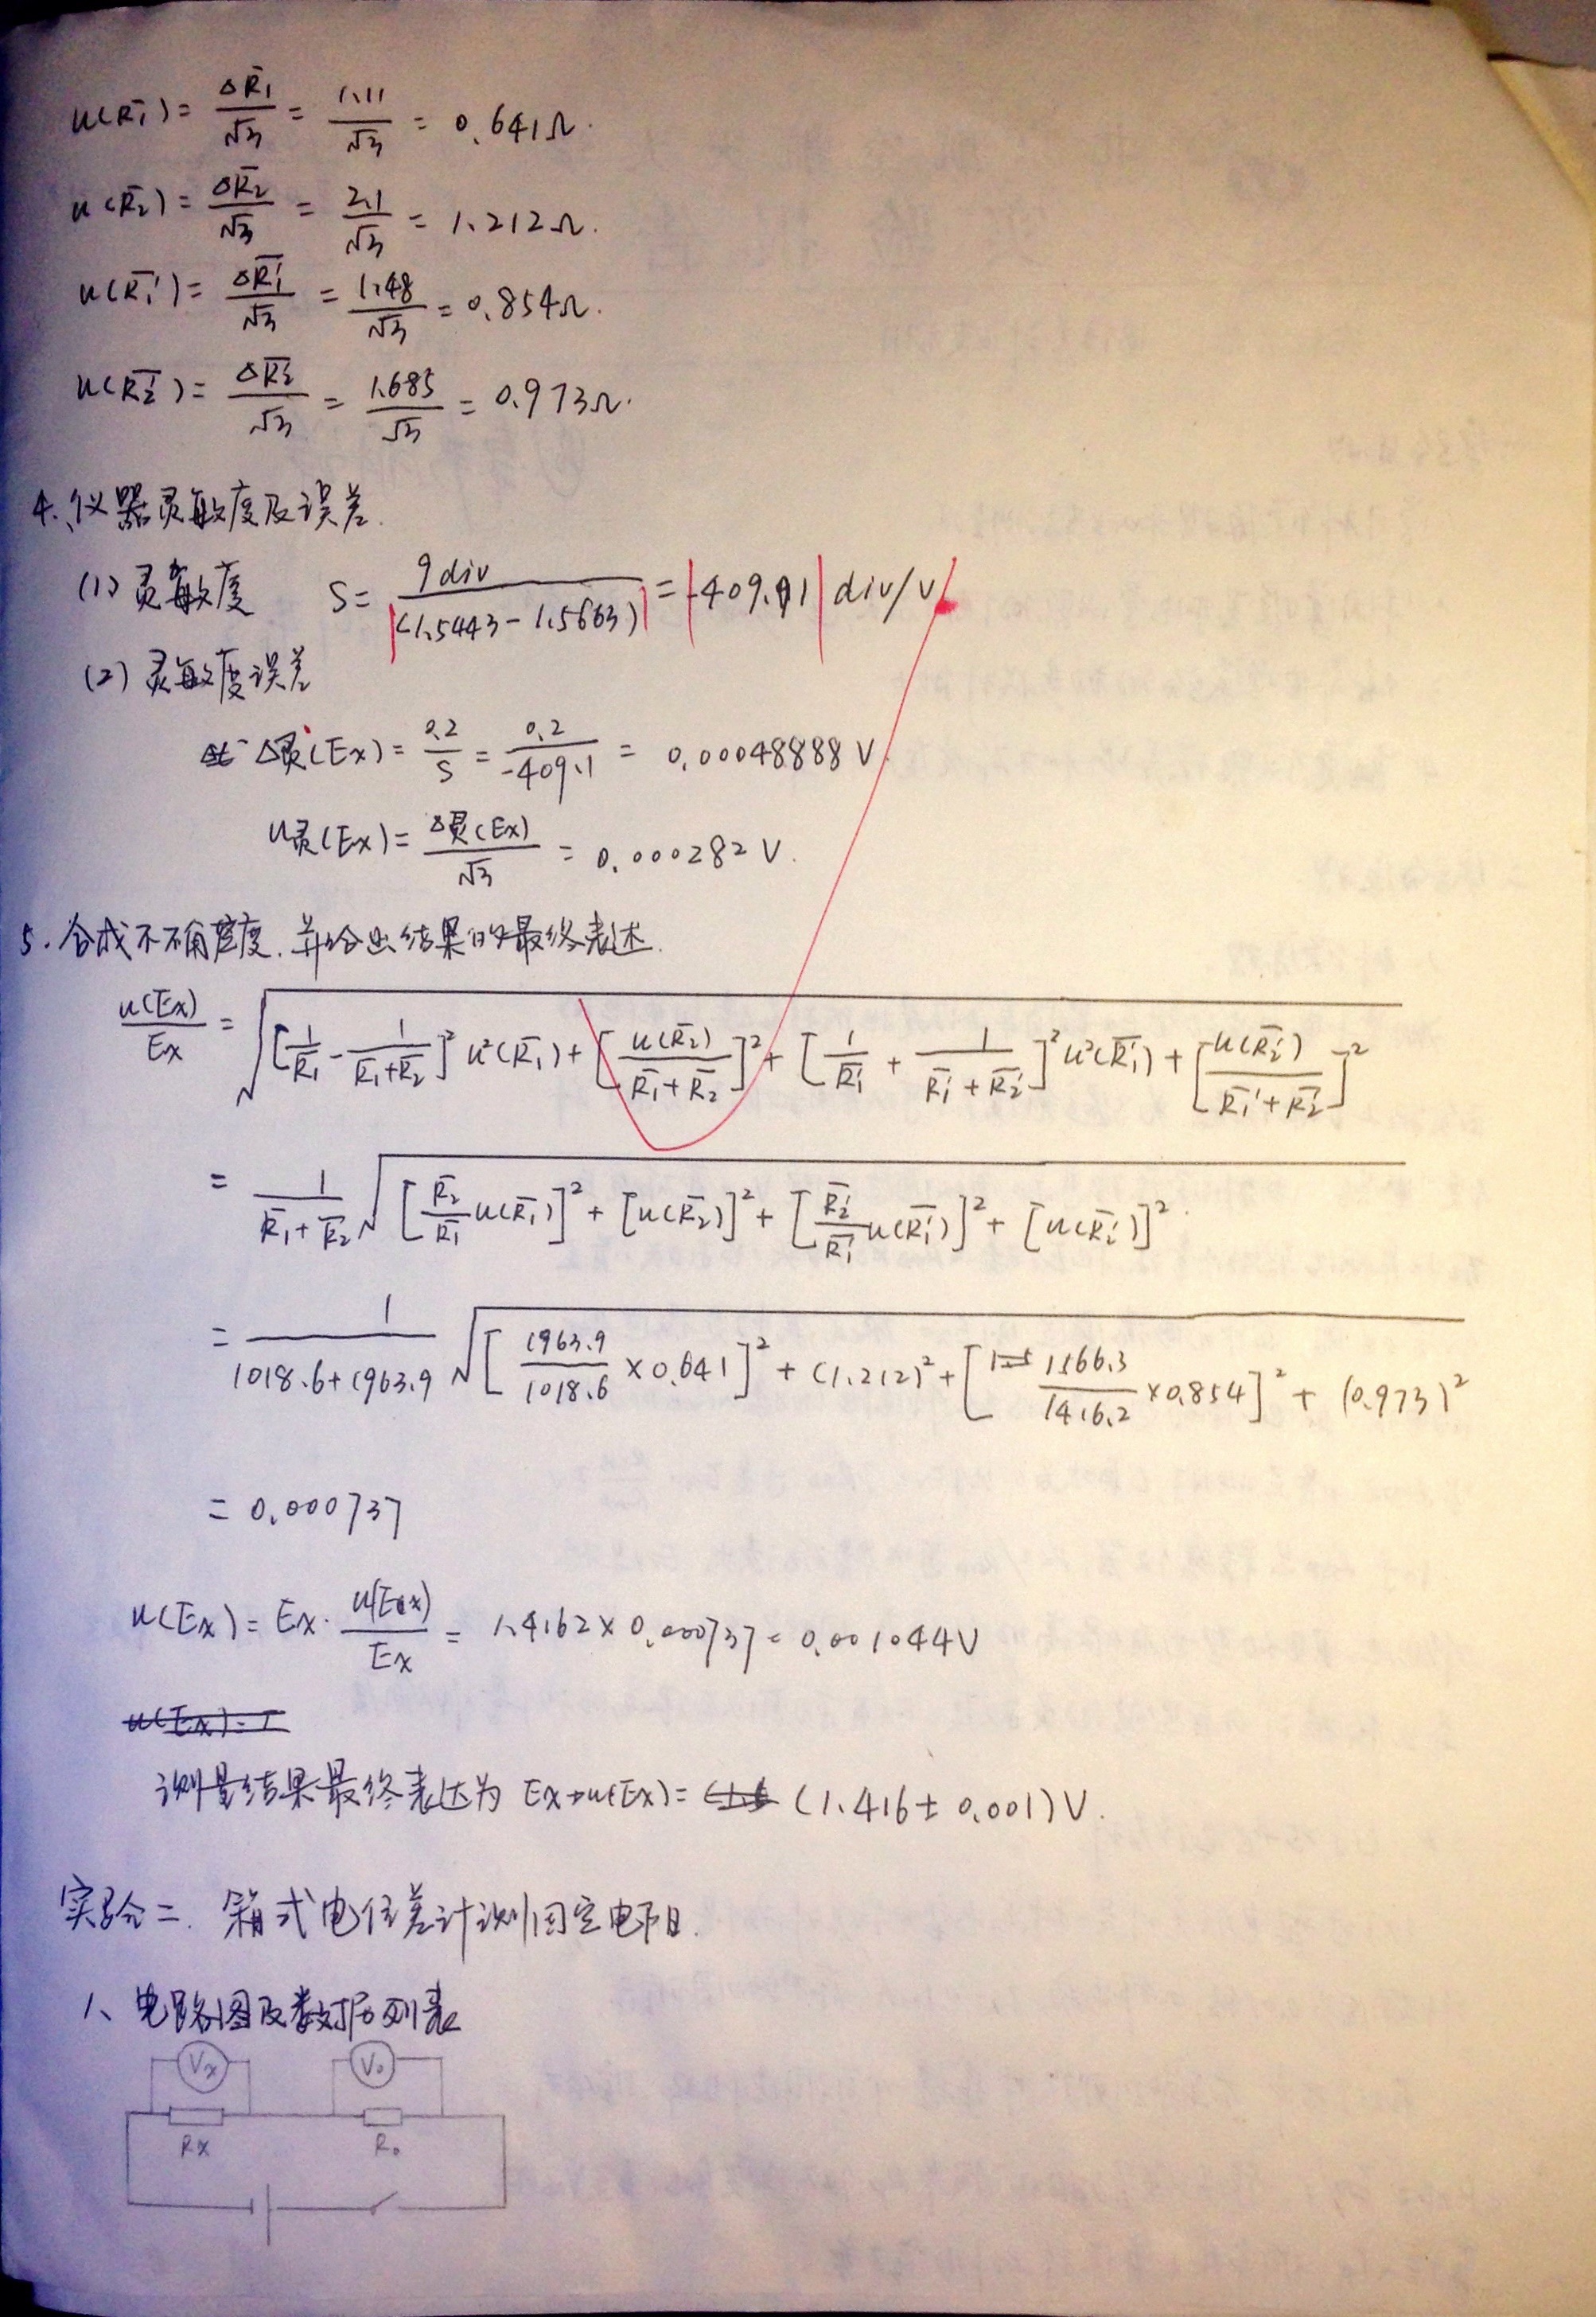 u(R̄₁) = ΔR̄₁/√3 = 1.11/√3 = 0.641Ω.
u(R̄₂) = ΔR̄₂/√3 = 2.1/√3 = 1.212Ω.
u(R̄₁') = ΔR̄₁'/√3 = 1.48/√3 = 0.854Ω.
u(R̄₂') = ΔR̄₂'/√3 = 1.685/√3 = 0.973Ω.
4、仪器灵敏度及误差.
(1) 灵敏度 S = 9div/|(1.5443-1.5663)| = |-409.91| div/V
(2) 灵敏度误差
Δ灵(Ex) = 0.2/S = 0.2/-409.1 = 0.00048888 V
u灵(Ex) = Δ灵(Ex)/√3 = 0.000282 V.
5.合成不确定度.并给出结果的最终表述.
u(Ex)/Ex = √([1/R̄₁ - 1/(R̄₁+R̄₂)]² u²(R̄₁) + [u(R̄₂)/(R̄₁+R̄₂)]² + [1/R̄₁' + 1/(R̄₁'+R̄₂')]² u²(R̄₁') + [u(R̄₂')/(R̄₁'+R̄₂')]²)
= 1/(R̄₁+R̄₂) √([R̄₂/R̄₁ u(R̄₁)]² + [u(R̄₂)]² + [R̄₂'/R̄₁' u(R̄₁')]² + [u(R̄₂')]²)
= 1/(1018.6+1963.9) √([1963.9/1018.6 ×0.641]² + (1.212)² + [1566.3/1416.2 ×0.854]² + (0.973)²)
= 0.000737
u(Ex) = Ex· u(Ex)/Ex = 1.4162×0.000737 = 0.001044V
u(Ex)=
测量结果最终表达为 Ex+u(Ex) = (1.416±0.001)V.
实验二. 箱式电位差计测固定电阻.
1、电路图及数据列表
Vx V₀
Rx R₀